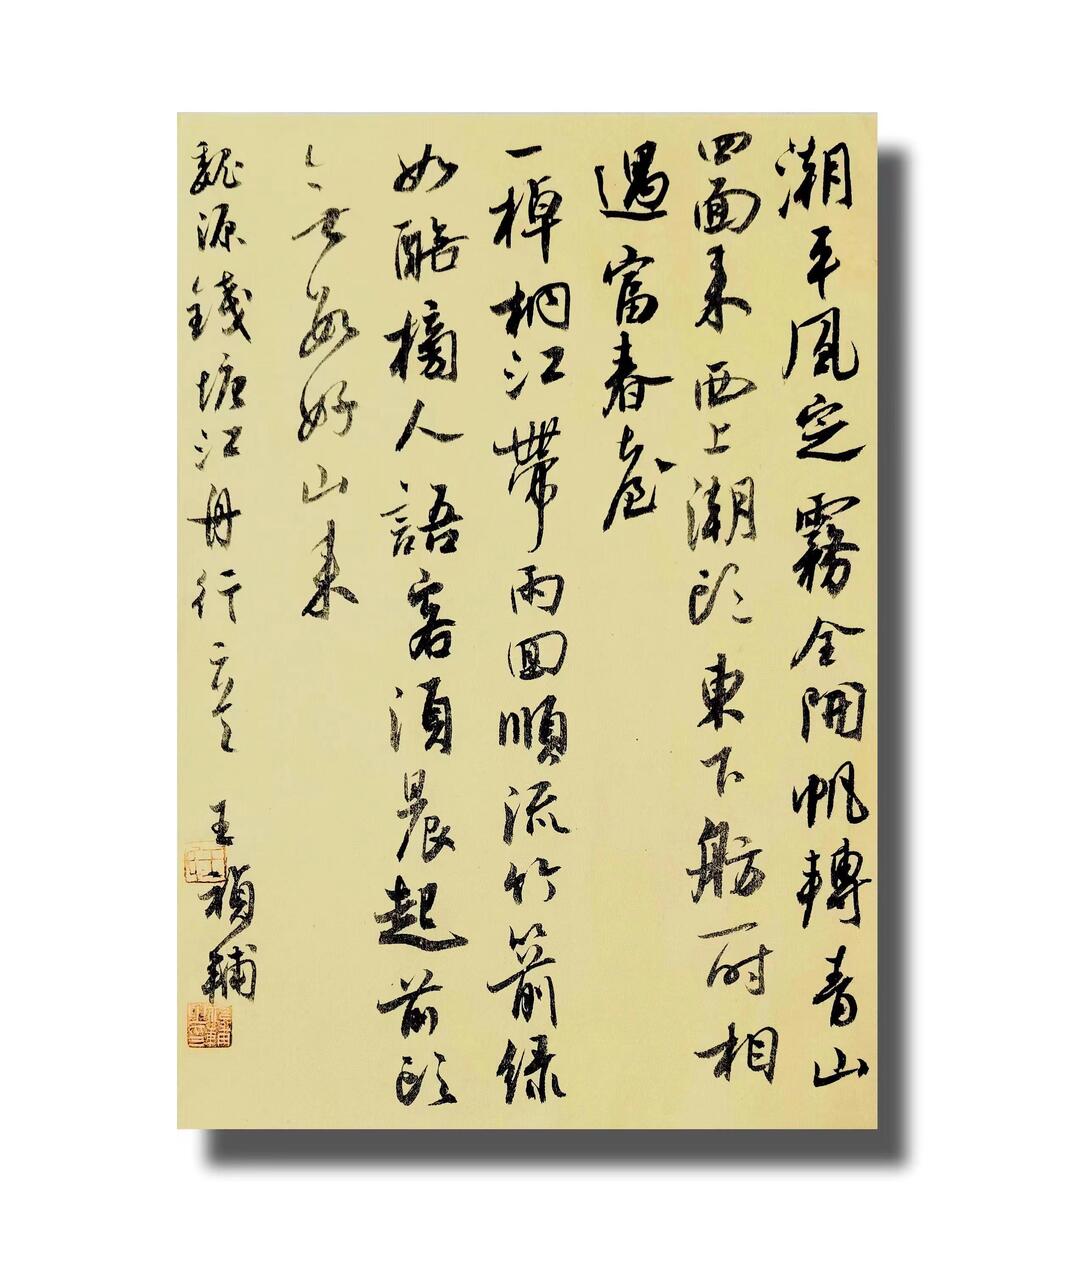 潮平風定霧全開帆轉青山
四面来西上潮頭東下舫一時相
遇富春臺
一棹桐江帶雨回順流竹箭綠
如醅榜人語客須晨起前頭
無數好山来
魏源錢塘江舟行 王禎輔